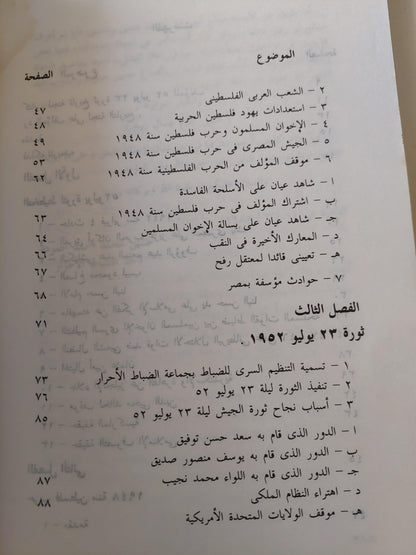 الموضوع
الصفحة
٢ - الشعب العربى الفلسطينى ٤٧
٣ - استعدادات يهود فلسطين الحربية ٤٨
٤ - الإخوان المسلمون وحرب فلسطين سنة ١٩٤٨ ٤٩
٥ - الجيش المصرى فى حرب فلسطين سنة ١٩٤٨ ٥٣
٦ - موقف المؤلف من الحرب الفلسطينية سنة ١٩٤٨ ٦٢
ا - شاهد عيان على الأسلحة الفاسدة
ب - اشتراك المؤلف فى حرب فلسطين سنة ١٩٤٨ ٦٣
جـ - شاهد عيان على بسالة الإخوان المسلمين ٦٤
د - المعارك الأخيرة فى النقب ٦٦
هـ - تعيينى قائدا لمعتقل رفح ٦٧
٧ - حوادث مؤسفة بمصر ٦٨
الفصل الثالث
ثورة ٢٣ يوليو ١٩٥٢ ٧١
١ - تسمية التنظيم السرى للضباط بجماعة الضباط الأحرار ٧٣
٢ - تنفيذ الثورة ليلة ٢٣ يوليو ٥٢ ٧٦
٣ - أسباب نجاح ثورة الجيش ليلة ٢٣ يوليو ٥٢ ٨٥
ا - الدور الذى قام به سعد حسن توفيق
ب - الدور الذى قام به يوسف منصور صديق
جـ - الدور الذى قام به اللواء محمد نجيب ٨٧
د - اهتراء النظام الملكى ٨٨
هـ - موقف الولايات المتحدة الأمريكية